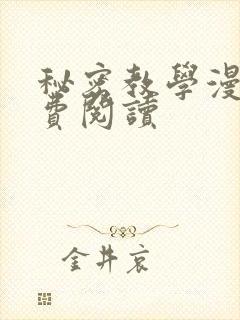 秘密教學漫
費閱讀
金井哀